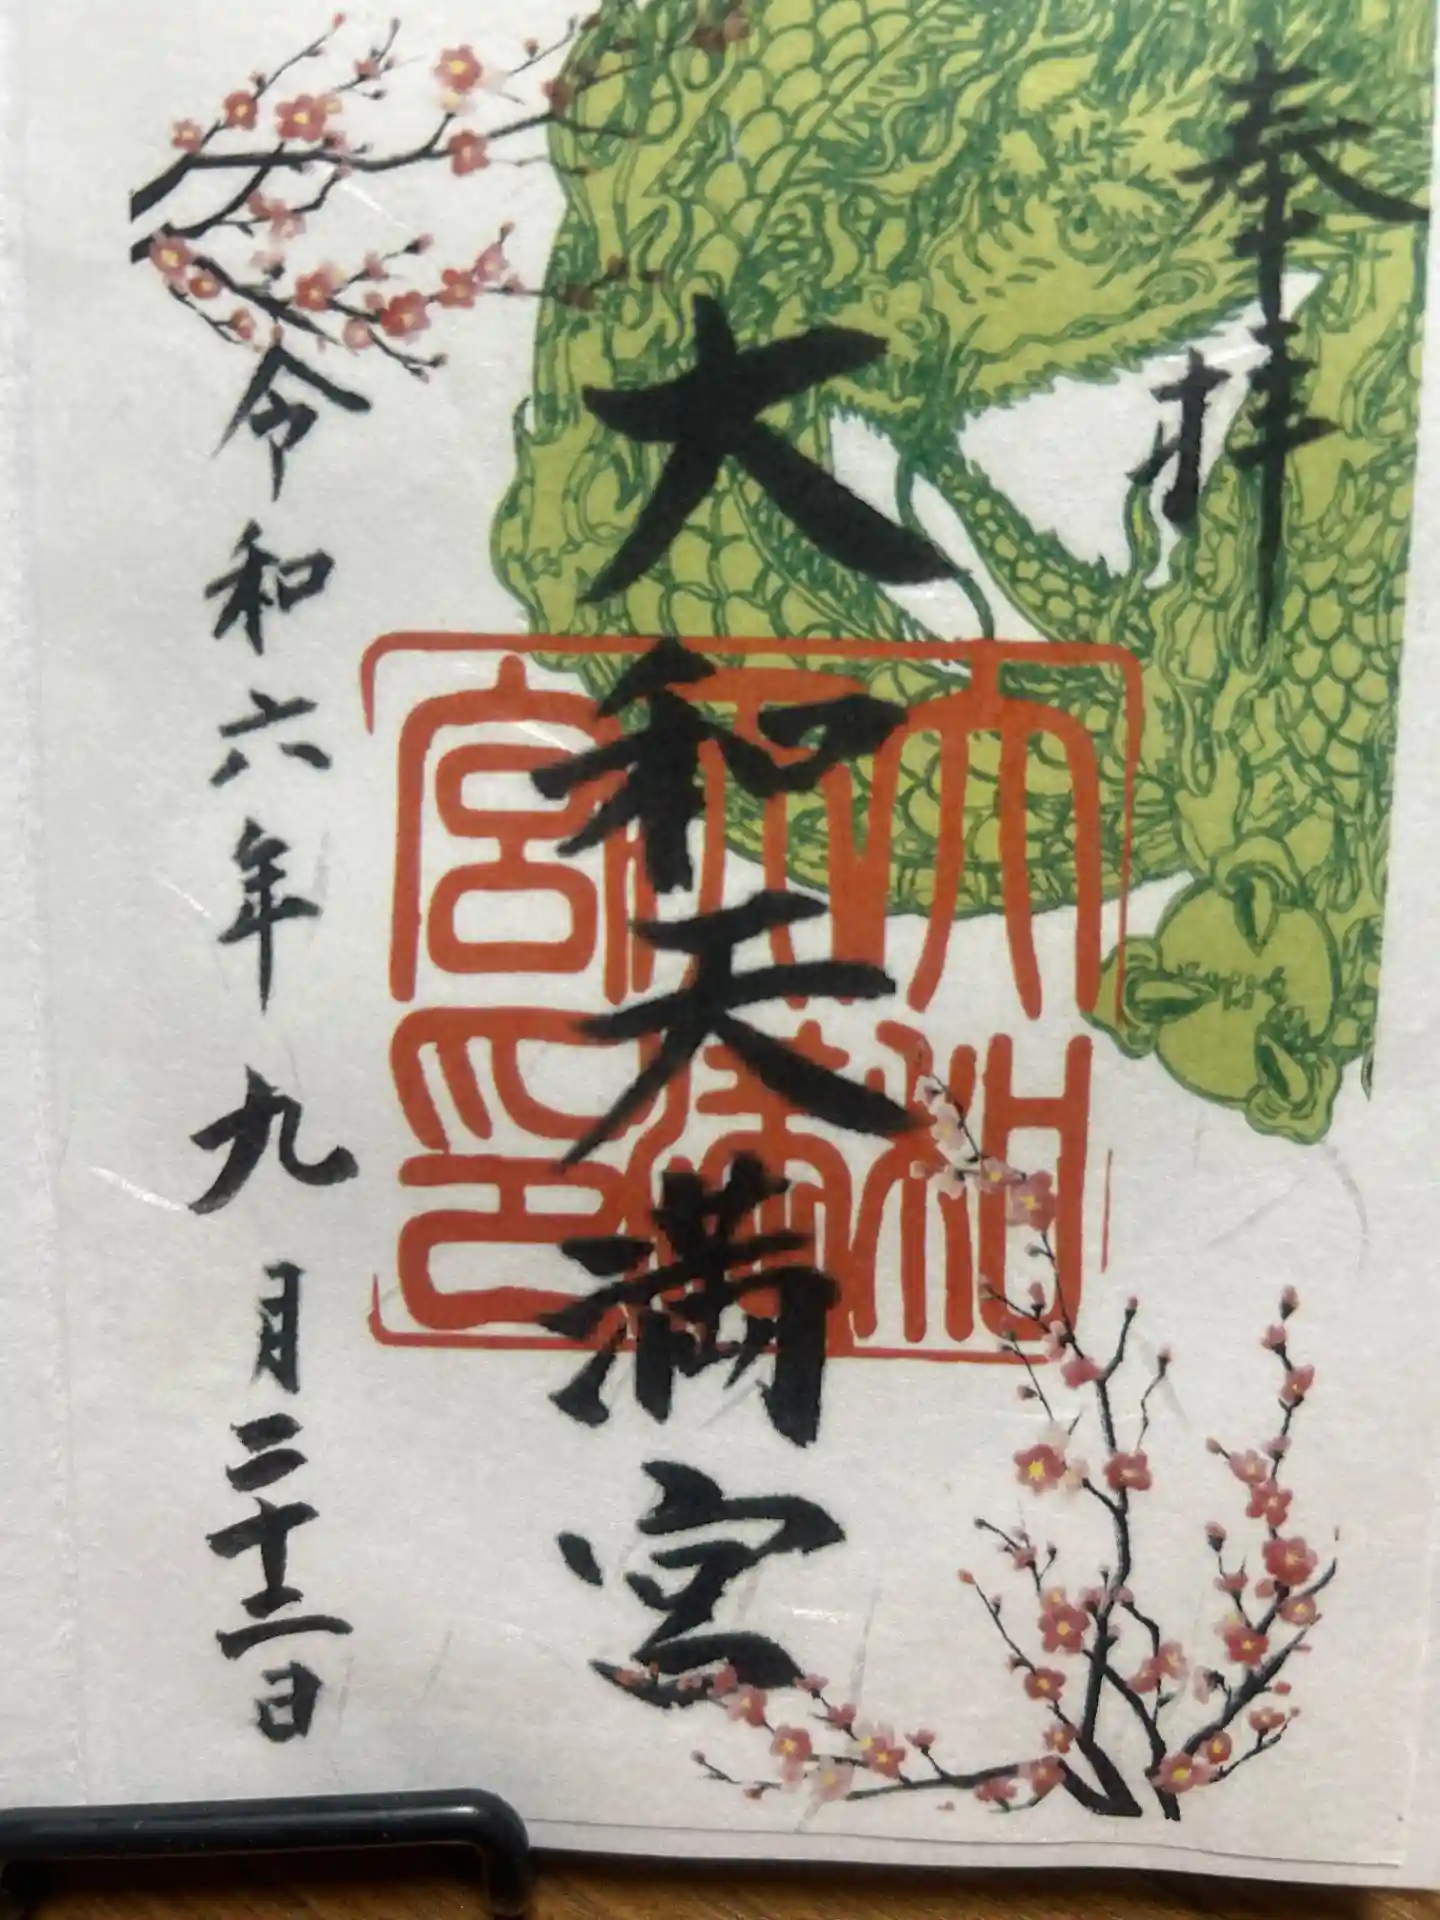 奉拝
大和天満宮
大和
天満
宮印
令和六年九月二十二日